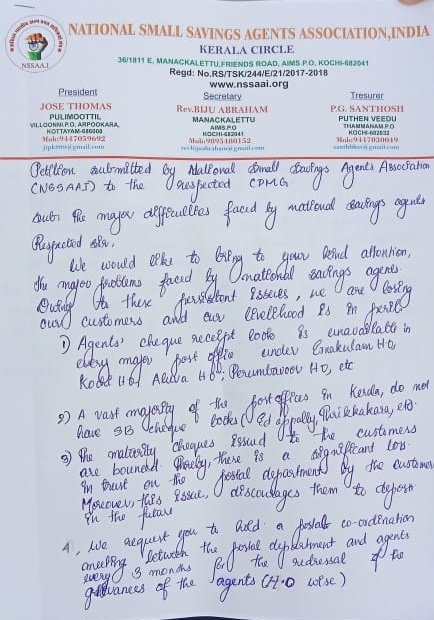 NATIONAL SMALL SAVINGS AGENTS ASSOCIATION,INDIA
KERALA CIRCLE
36/1811 E, MANACKALETTU,FRIENDS ROAD, AIMS P.O, KOCHI-682041
Regd: No.RS/TSK/244/E/21/2017-2018
www.nssaai.org
NSSAA.I
President
JOSE THOMAS
PULIMOOTTIL
VILLOONNI.P.O, ARPOOKARA,
KOTTAYAM-686008
Mob:9447059692
Secretary
Rev.BIJU ABRAHAM
MANACKALETTU
AIMS.P.O
KOCHI-682041
Mob:9895480152
Tresurer
P.G. SANTHOSH
PUTHEN VEEDU
THAMMANAM.P.O
KOCHI-682032
Mob:9447030049
Petition submitted by National Small Savings Agents Association
(NSSAAI) to the respected CPMG
Sub: The major difficulties faced by national savings agents
Respected Sir,
We would like to bring to your kind attention,
the major problems faced by national savings agents.
Owing to these persistent issues, we are losing
our customers and our livelihood is in peril.
1) Agents' cheque receipt book is unavailable in
every major post office under Ernakulam HO,
Kochi HO, Aluva HO, Perumbavoor HO, etc
2) A vast majority of the post offices in Kerala, do not
have SB cheque books (Edappally, Thrikkakara, etc.
3) The maturity cheques issud to the customers
are bounced. Thereby, there is a significant loss
in trust on the postal department by the customers
Moreover, this issue, discourages them to deposit
in the future
4, We request you to hold a postal co-ordination
meeting between the postal department and agents
every 3 months for the redressal of the
grievances of the agents (H.O wise)